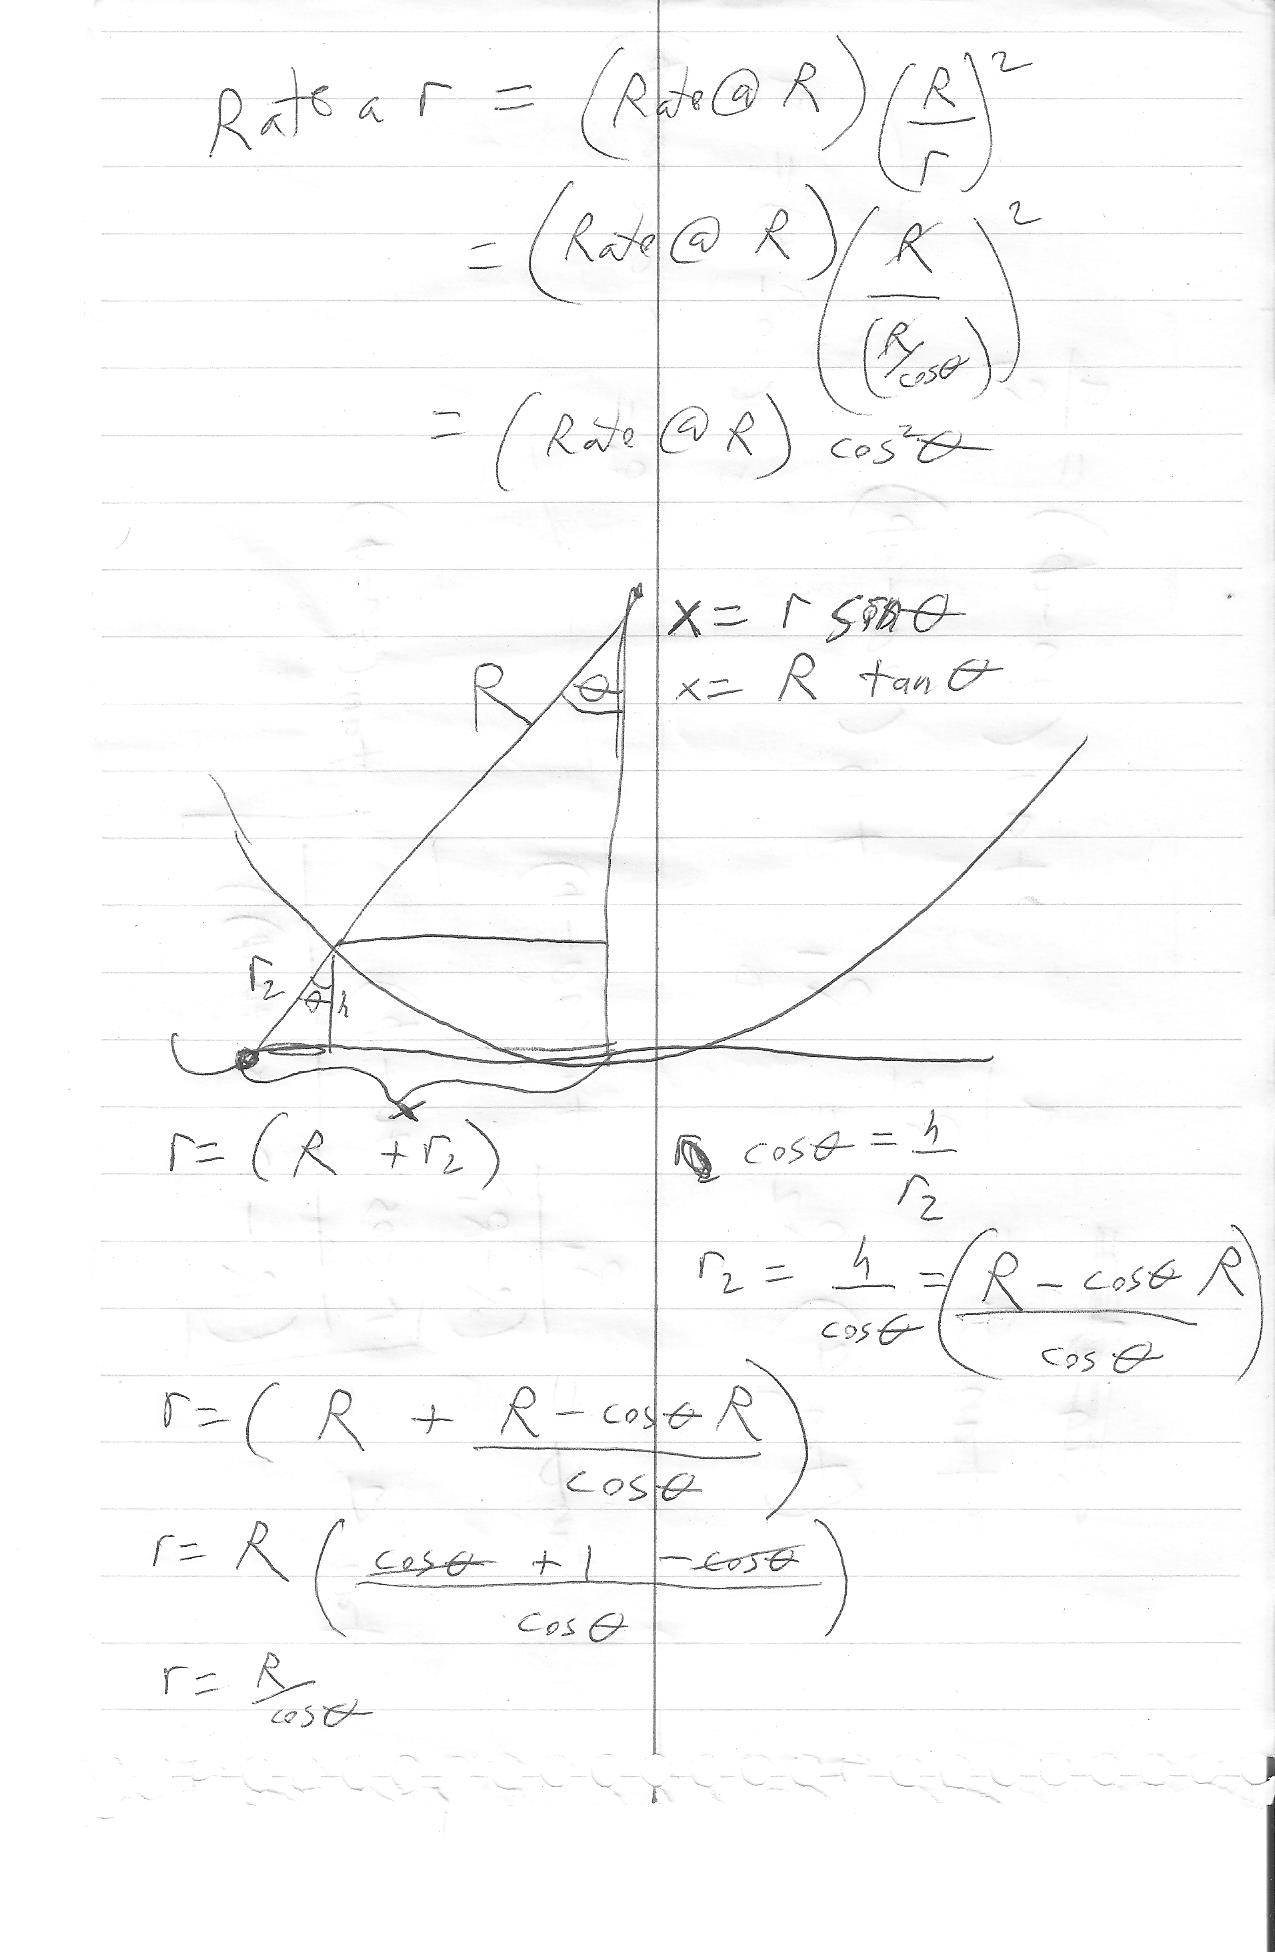 Rate a r = (Rate @ R) (R/r)²
= (Rate @ R) (R/(R/cosθ))²
= (Rate @ R) cos²θ
x = r sinθ
x = R tan θ
R
θ
r₂
θ
h
x
r = (R + r₂)
cosθ = h/r₂
r₂ = h/cosθ = ((R - cosθ R)/cosθ)
r = (R + (R - cosθ R)/cosθ)
r = R ((cosθ + 1 - cosθ)/cosθ)
r = R/cosθ